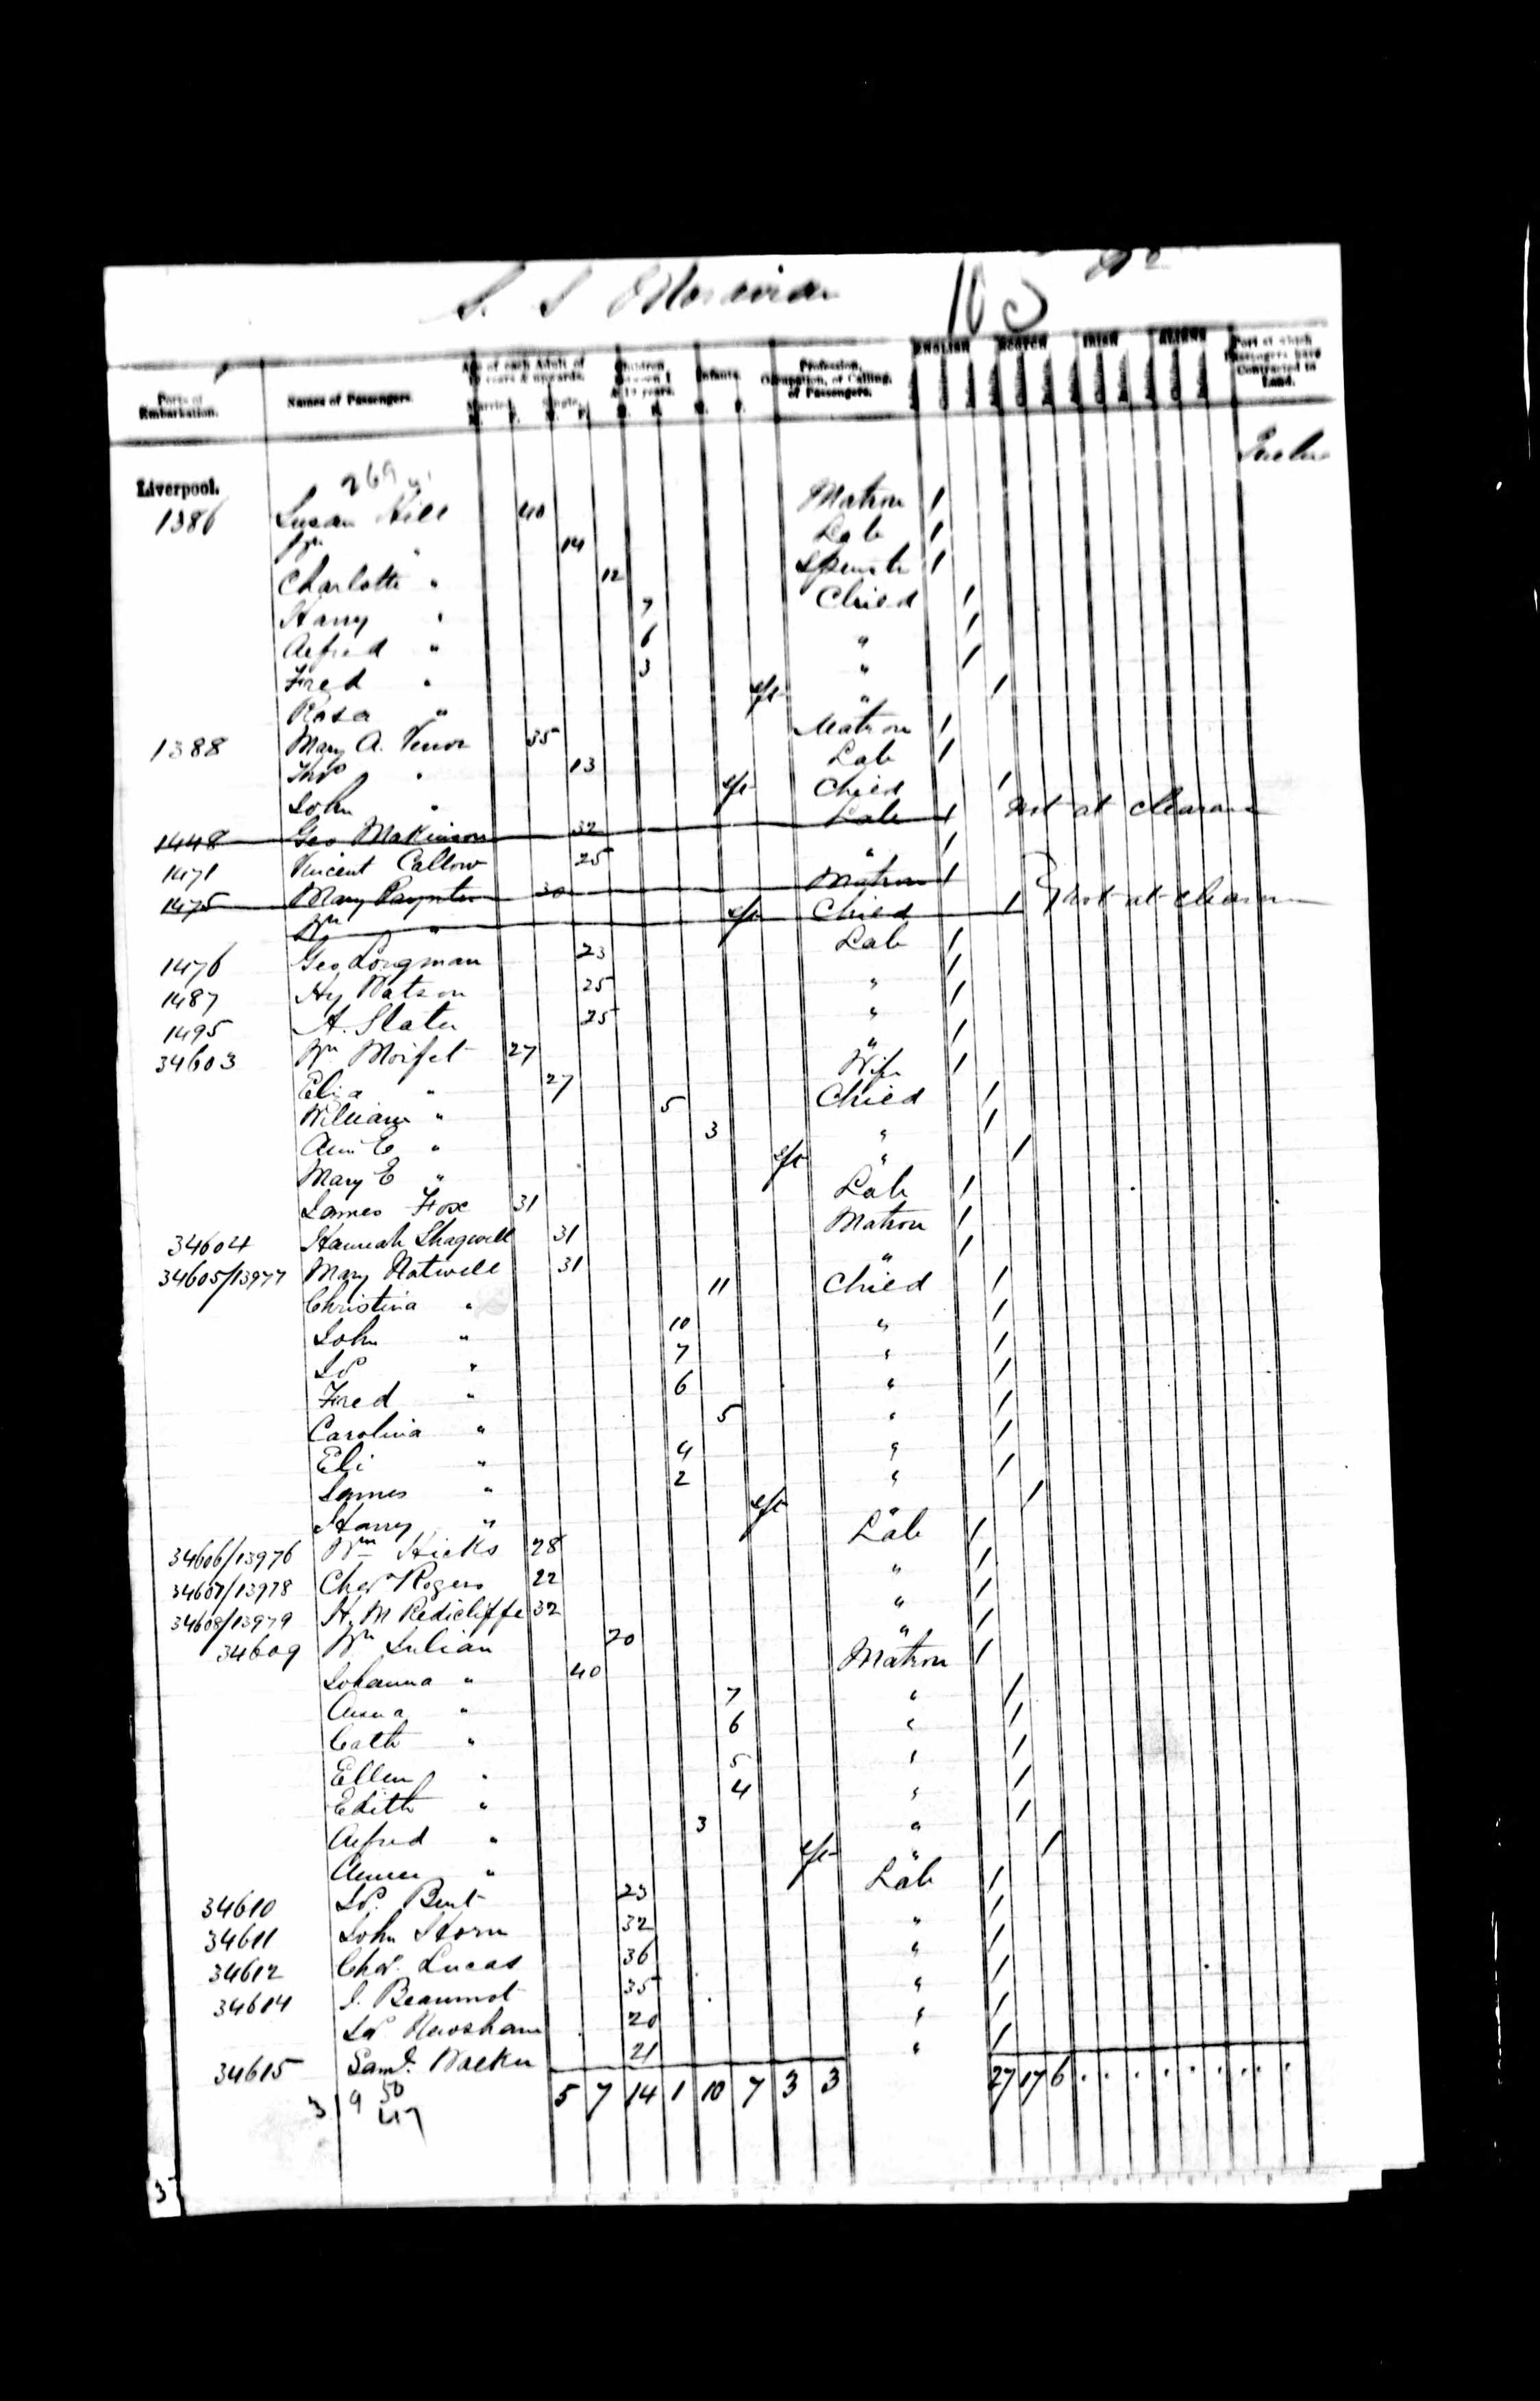 S. S Moravian 105
Ports of Embarkation. Names of Passengers. Age of each Adult of 12 years & upwards. Children between 1 & 12 years. Infants. Profession, Occupation, or Calling, of Passengers. ENGLISH SCOTCH IRISH ALIENS Port at which Passengers have Contracted to Land.
Married. Single.
M. F. M. F. M. F. M. F.
Liverpool. 269
1386 Susan Hill 40 Matron 1
Wm " 14 Lab 1
Charlotte " 12 Spinster 1
Harry " 7 Child 1
Alfred " 6 " 1
Fred " 3 " 1
Rosa " inft " 1
1388 Mary A. Venor 35 Matron 1
Thos " 13 Lab 1
John " inft Child 1
1448 Geo Makinson 32 Lab 1 not at clearance
1471 Vincent Callow 25 " 1
1475 Mary Paynter 30 Matron 1
Wm " inft Child 1 } not at clearance
1476 Geo Longman 23 Lab 1
1487 Hy Watson 25 " 1
1495 A. Slater 25 " 1
34603 Wm Moifet 27 " 1
Eliza " 27 Wife 1
William " 5 Child 1
Ann E " 3 " 1
Mary E " inft " 1
James Fox 31 Lab 1
34604 Hannah Shagwell 31 Matron 1
34605/13977 Mary Natwell 31 " 1
Christina " 11 Child 1
John " 10 " 1
Jos " 7 " 1
Fred " 6 " 1
Carolina " 5 " 1
Eli " 4 " 1
James " 2 " 1
Harry " inft " 1
34606/13976 Wm Hicks 28 Lab 1
34607/13978 Chas Rogers 22 " 1
34608/13979 H. M Redicliffe 32 " 1
34609 Wm Julian 20 " 1
Johanna " 40 Matron 1
Anna " 7 " 1
Cath " 6 " 1
Ellen " 5 " 1
Edith " 4 " 1
Alfred " 3 " 1
" inft " 1
34610 Jos. Bent 23 Lab 1
34611 John Storn 32 " 1
34612 Chas. Lucas 36 " 1
34614 J. Beaumot 35 " 1
Jos Newsham 20 " 1
34615 Saml. Walker 21 " 1
3 9 50 5 7 14 1 10 7 3 3 27 17 6 . . . . . . . . .
47
3